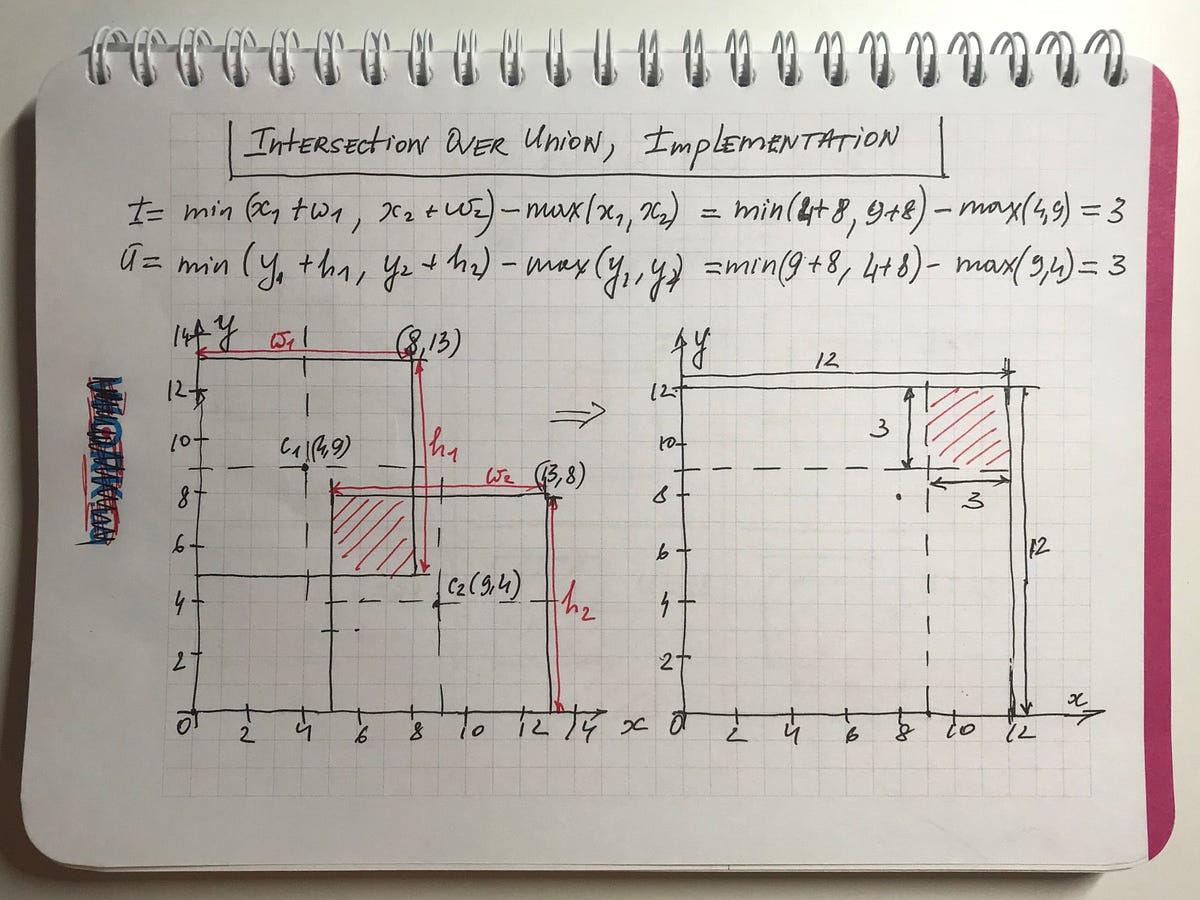 Intersection Over Union, Implementation
I= min (x₁+w₁, x₂+w₂)-max(x₁,x₂) = min(4+8, 9+8)-max(4,9)=3
U= min (y₁+h₁, y₂+h₂)-max(y₁,y₂) =min(9+8, 4+8)- max(9,4)=3
14 y w₁ (8,13)
12
10 c₁(4,9) h₁
8 w₂ (13,8)
6
4 c₂(9,4) h₂
2
0 2 4 6 8 10 12 14 x
y
12
12
10 3
8 3
6 12
4
2
x
0 2 4 6 8 10 12